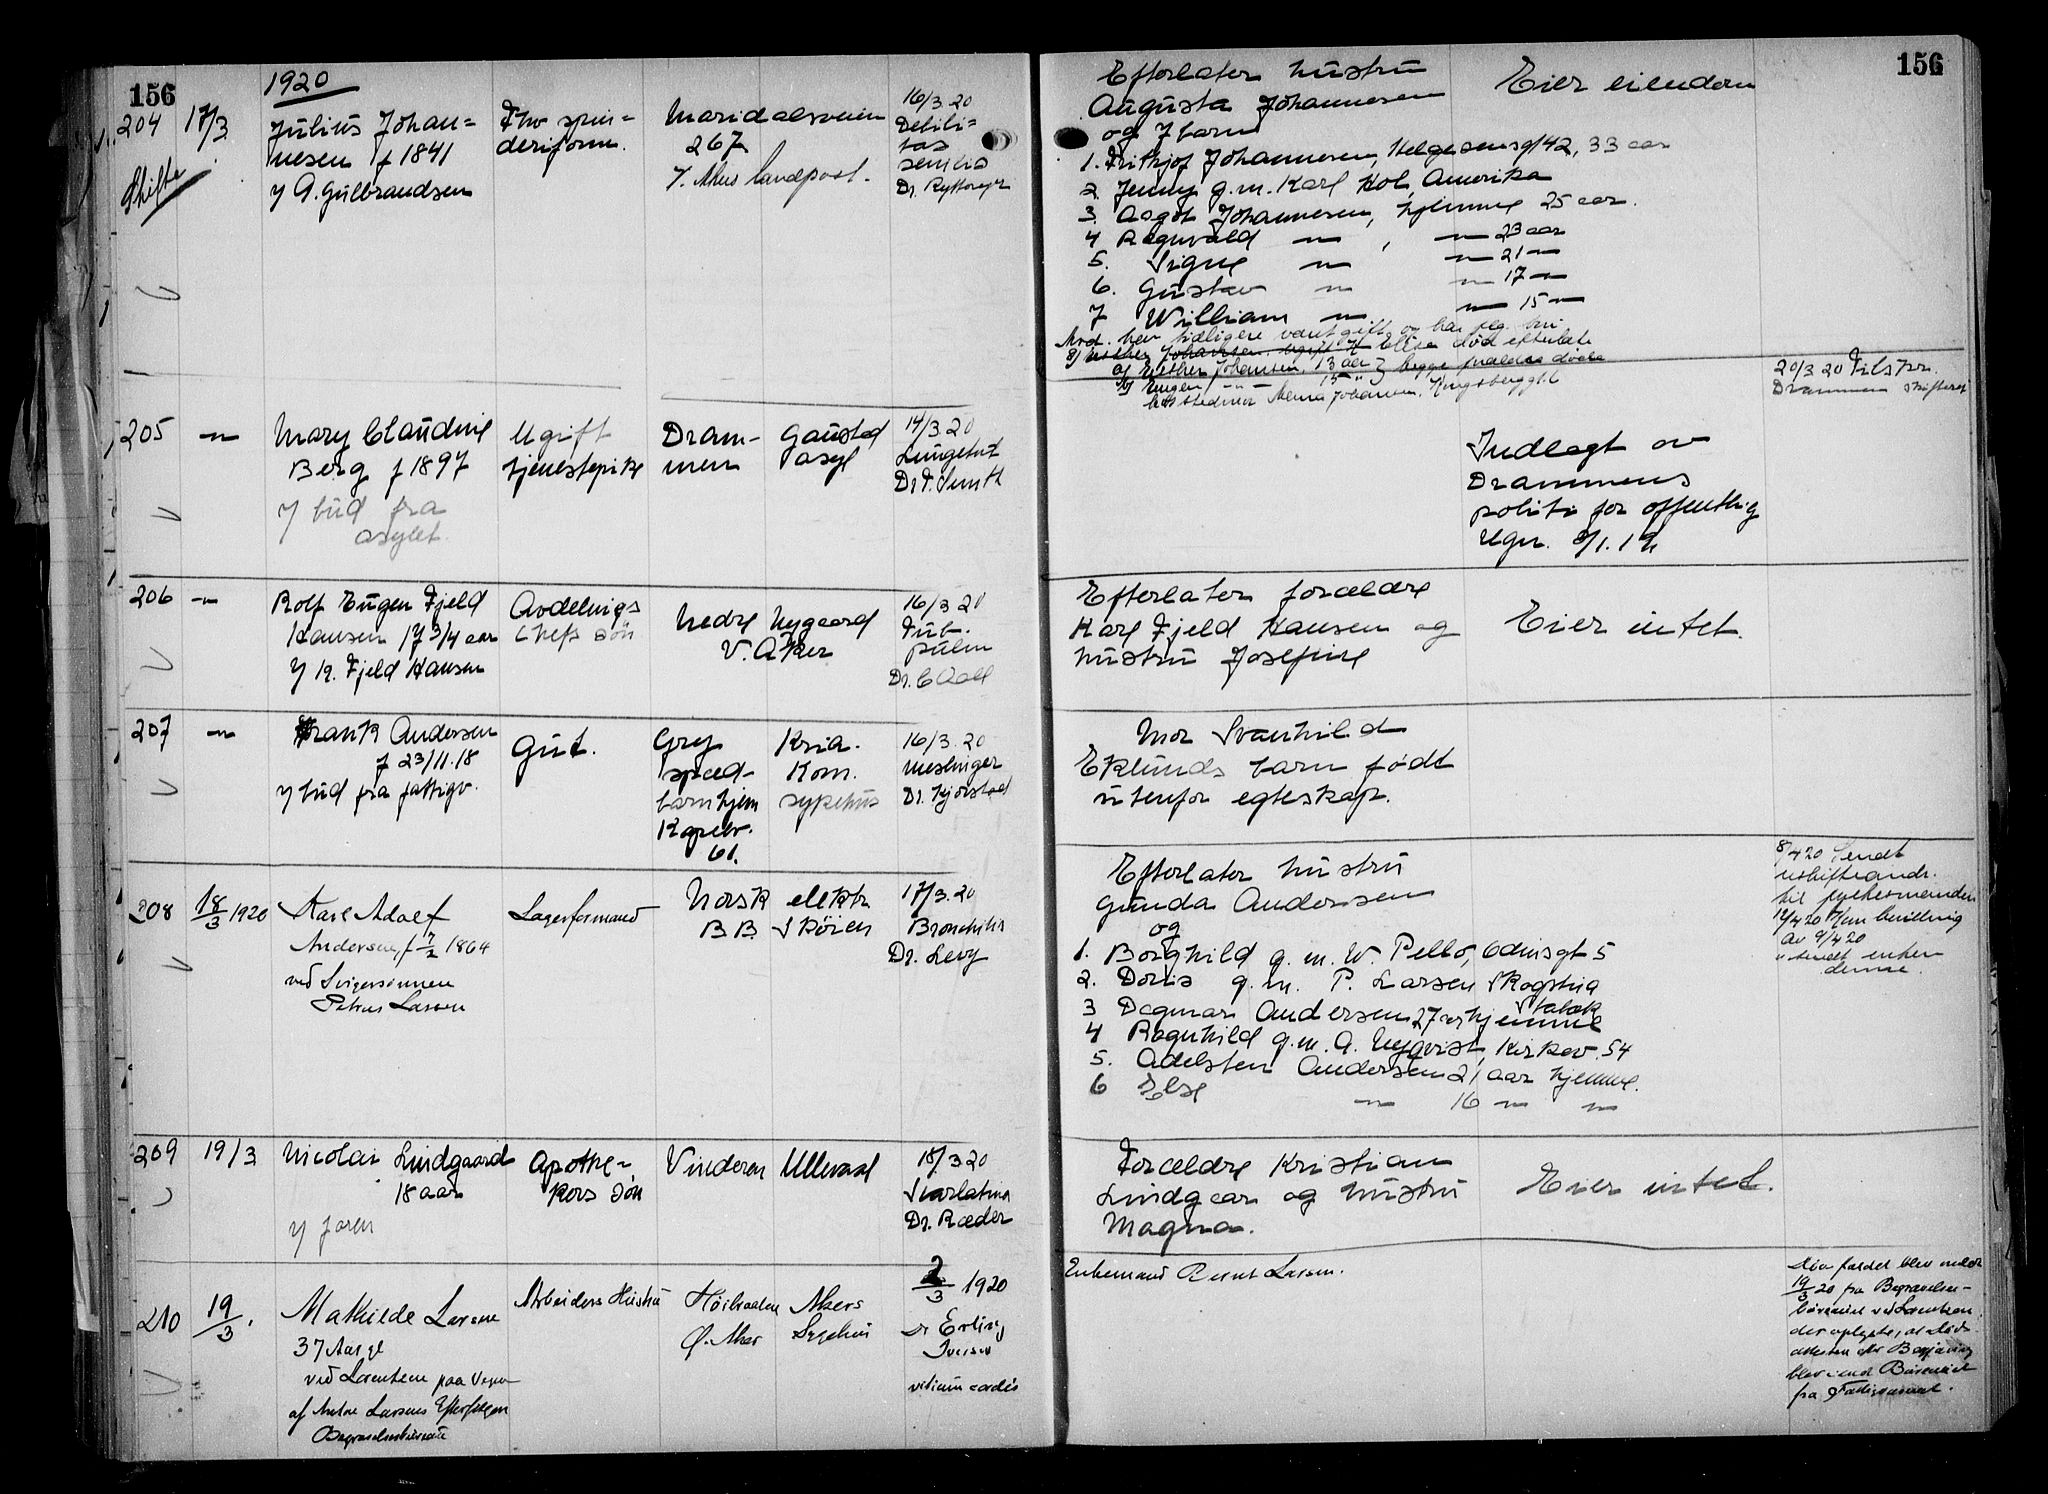 156
1920
204 17/3 Julius Johan=
nesen f 1841
v/ A. Gulbrandsen
Skifte
Fhv spin=
deriform.
Maridalsveien
267
V. Aker landpost.
16/3 20
Debili=
tas
senilis
Dr.
205 — Mary Claudine
Berg f 1897
v/ bud fra
asylet.
Ugift
tjenestepike
Dram-
men
Gausted
asyl
14/3 20
Lungebet
Dr.
206 — Rolf Eugen Fjeld
Hansen 17 3/4 aar
v/ K. Fjeld Hansen
Avdelings
chefs søn
Nedre Nygaard
V. Aker
16/3 20
Tub.
pulm
Dr. C Aall
207 — Frank Andersen
f 23/11.18
v/ bud fra fattigv.
Gut.
Grey
sped-
barnhjem
Kapelv.
61.
Kria.
Kom.
sykehus
16/3.20
Meslinger
Dr. Kjølstad
208 18/3 1920 Karl Adolf
Andersen, f 7/2 1864
ved Svigersønnen
Petrus Larsen
Lagerformand
Norsk elektr.
B.B. Skøien
17/3.20
Bronchitis
Dr. Levy
209 19/3 Nicolai Lindgaard
18 aar
v/ faren
Apothe-
kers søn
Vinderen
Ullevaal
18/3 20
Scarlatina
Dr. Ræder
210 19/3. Mathilde Larsen
37 Aar gl
ved Lorentzen paa Vegne
af Anton Larsens Efterfølgers
Begravelsesbureau
Arbeiders Hustru
Høibraaten
Ø. Aker
Akers
Sygehus
2/3 1920
Dr Erling
Iversen
vitium cordis
156
Efterlater hustru
Augusta Johannesen
og 7 barn
Eier eiendom
1. Fritjof Johannesen, Helgesensgt 42, 33 aar
2. Jenny g.m. Karl Hol, Amerika
3. Asgot Johannesen, hjemme 25 aar.
4 Ragnvald — , — 23 aar
5. Signe — — 21 —
6. Gustav — — 17 —
7 William — — 15 —
Avd. har tidligere vært gift og har
død efterlate
a/ Esther Johansen, 13 aar } begge forældre døde
b/ Eugen —"— 15 "
Johansen, Kongsberggt. 6
20/3 20 Tilskr.
Drammen skifteret
Indlagt av
Drammens
politi for offentlig
regn.
Efterlater forældre
Karl Fjeld Hansen og
hustru Josefine
Eier intet.
Mor Svanhild
Eklunds barn født
utenfor egteskap.
Efterlater hustru
Gunda Andersen
og
1. Borghild g.m. W. Pello, Odinsgt 5
2. Doris g.m. P. Larsen Skogstua
Stabæk
3 Dagmar Andersen 27 aar hjemme
4 Ragnhild g.m. A. Nyqvist, Kirkev. 54
5. Adelsten Andersen 21 aar hjemme.
6 Else — 16 — —
8/4 20 Sendt
uskifteandr.
til fylkesmanden
12/4 20 bevilling
av 9/4 20
sendt enken
denne.
Forældre Kristian
Lindgaar og hustru
Magna.
Eier intet.
Enkemand Bernt Larsen.
Dødsfaldet blev meldt
19/3 20 fra Begravelses-
bureauet ved Lorentzen,
der oplyste, at Døds-
attesten efter Begjæring
blev sendt Bureauet
fra Fattigvæsenet.